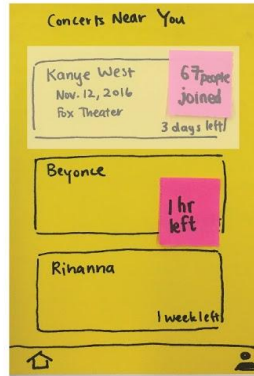 Concerts Near You
Kanye West
Nov. 12, 2016
Fox Theater
67 people
joined
3 days left!
Beyonce
1 hr
left
Rihanna
1 week left